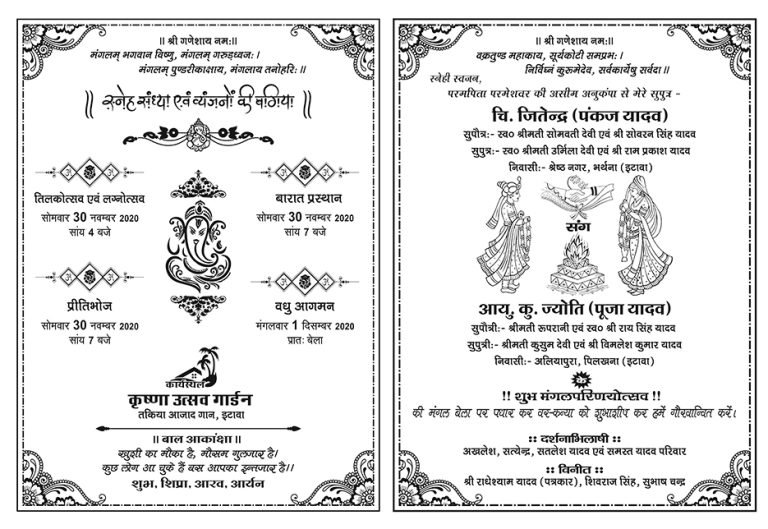 ॥ श्री गणेशाय नमः॥
मंगलम् भगवान विष्णु, मंगलम् गरुडध्वजः।
मंगलम् पुण्डरीकाशाय, मंगलाय तनोहरिः॥
॥ स्नेह संध्या एवं व्यंजनों की बगिया ॥
तिलकोत्सव एवं लग्नोत्सव
सोमवार 30 नवम्बर 2020
सांय 4 बजे
बारात प्रस्थान
सोमवार 30 नवम्बर 2020
सांय 7 बजे
प्रीतिभोज
सोमवार 30 नवम्बर 2020
सांय 7 बजे
वधु आगमन
मंगलवार 1 दिसम्बर 2020
प्रातः बेला
कार्यस्थल
कृष्णा उत्सव गार्डन
तकिया आजाद गान, इटावा
॥ बाल आकांक्षा॥
खुशी का मौका है, मौसम गुलजार है।
कुछ लोग आ चुके हैं बस आपका इन्तजार है।।
शुभ, शिप्रा, आरव, आर्यन
॥ श्री गणेशाय नमः॥
वक्रतुण्ड महाकाय, सूर्यकोटी समप्रभः।
निर्विघ्नं कुरूमेदेव, सर्वकार्येषु सर्वदा॥
स्नेही स्वजन,
परमपिता परमेश्वर की असीम अनुकंपा से मेरे सुपुत्र -
चि. जितेन्द्र (पंकज यादव)
सुपौत्रः- स्व० श्रीमती सोमवती देवी एवं श्री सोवरन सिंह यादव
सुपुत्रः- स्व० श्रीमती उर्मिला देवी एवं श्री राम प्रकाश यादव
निवासी:- श्रेष्ठ नगर, भर्थना (इटावा)
संग
आयु. कु. ज्योति (पूजा यादव)
सुपौत्री:- श्रीमती रूपरानी एवं स्व० श्री राय सिंह यादव
सुपुत्री:- श्रीमती कुसुम देवी एवं श्री विमलेश कुमार यादव
निवासी:- अलियापुरा, पिलखना (इटावा)
के
!! शुभ मंगलपरिणयोत्सव !!
की मंगल बेला पर पधार कर वर-कन्या को शुभाशीष कर हमें गौरवान्वित करें।
:: दर्शनाभिलाषी ::
अखलेश, सत्येन्द्र, सतलेश यादव एवं समस्त यादव परिवार
:: विनीत ::
श्री राधेश्याम यादव (पत्रकार), शिवराज सिंह, सुभाष चन्द्र